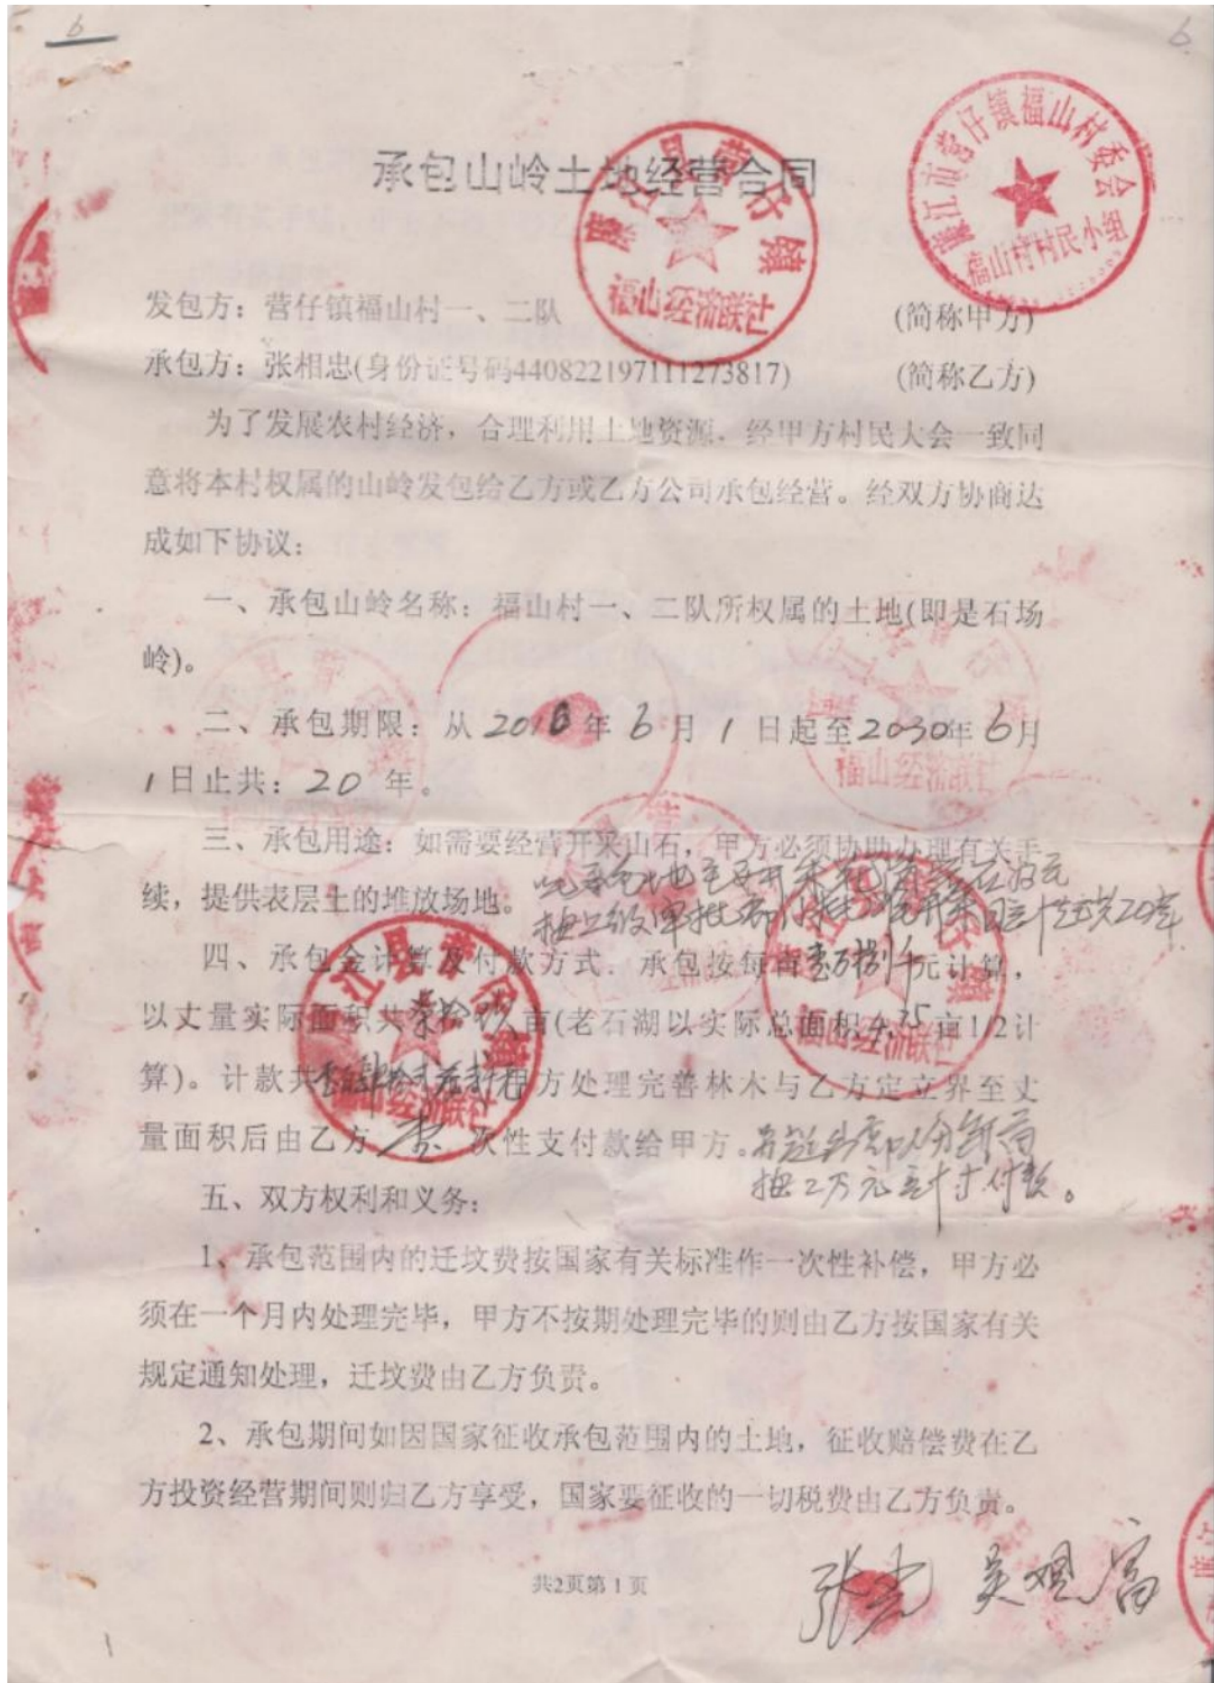 6
6
承包山岭土地经营合同
廉江市营仔镇福山村委会
福山村村民小组
廉江县营仔镇
福山经济联社
发包方：营仔镇福山村一、二队 (简称甲方)
承包方：张相忠(身份证号码440822197111273817) (简称乙方)
为了发展农村经济，合理利用土地资源，经甲方村民大会一致同
意将本村权属的山岭发包给乙方或乙方公司承包经营。经双方协商达
成如下协议：
一、承包山岭名称：福山村一、二队所权属的土地(即是石场
岭)。
二、承包期限：从2010年6月1日起至2030年6月
1日止共：20年。
三、承包用途：如需要经营开采山石，甲方必须协助办理有关手
续，提供表层土的堆放场地。
四、承包金计算及付款方式：承包按每亩壹万捌仟元计算，
以丈量实际面积共 亩(老石湖以实际总面积4.75亩1/2计
算)。计款共 甲方处理完善林木与乙方定立界至丈
量面积后由乙方壹次性支付款给甲方。
按2万元计付款。
五、双方权利和义务：
1、承包范围内的迁坟费按国家有关标准作一次性补偿，甲方必
须在一个月内处理完毕，甲方不按期处理完毕的则由乙方按国家有关
规定通知处理，迁坟费由乙方负责。
2、承包期间如因国家征收承包范围内的土地，征收赔偿费在乙
方投资经营期间则归乙方享受，国家要征收的一切税费由乙方负责。
共2页第1页